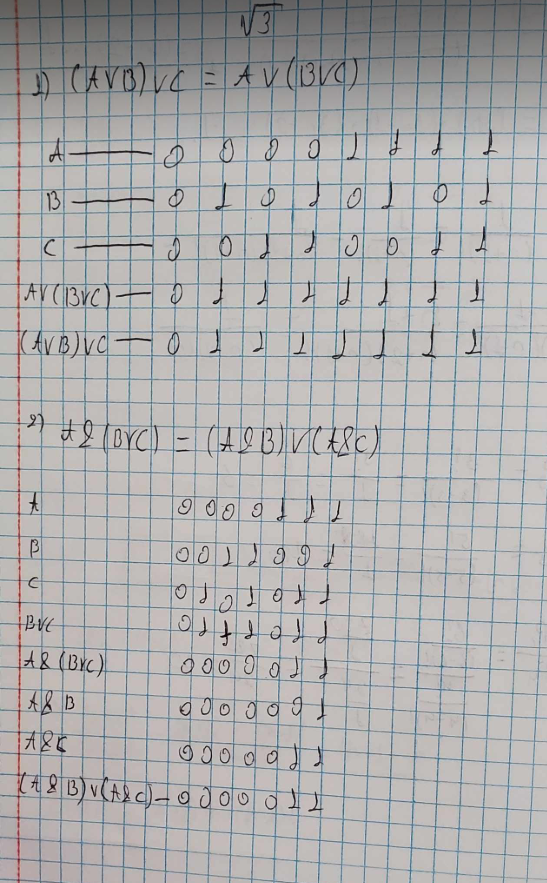 √3
1) (A∨B)∨C = A∨(B∨C)
A — 0 0 0 0 1 1 1 1
B — 0 1 0 1 0 1 0 1
C — 0 0 1 1 0 0 1 1
A∨(B∨C) — 0 1 1 1 1 1 1 1
(A∨B)∨C — 0 1 1 1 1 1 1 1
2) A&(B∨C) = (A&B)∨(A&C)
A 0 0 0 0 1 1 1
B 0 0 1 1 0 0 1
C 0 1 0 1 0 1 1
B∨C 0 1 1 1 0 1 1
A&(B∨C) 0 0 0 0 0 1 1
A&B 0 0 0 0 0 0 1
A&C 0 0 0 0 0 1 1
(A&B)∨(A&C) — 0 0 0 0 0 1 1